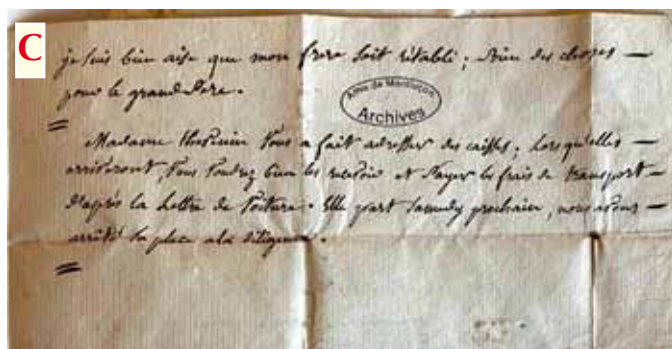 C
je suis bien aise que mon frere soit rétabli ; Bien des choses —
pour le grand Pere .
=
Madame vous a fait adresser des caisses ; Lorsqu'elles —
arriveront, vous voudrez bien les recevoir et payer les frais de transport —
d'après la Lettre de voiture . Elle part samedy prochain, nous avons —
arrêté sa place a la diligence .
=
Archives